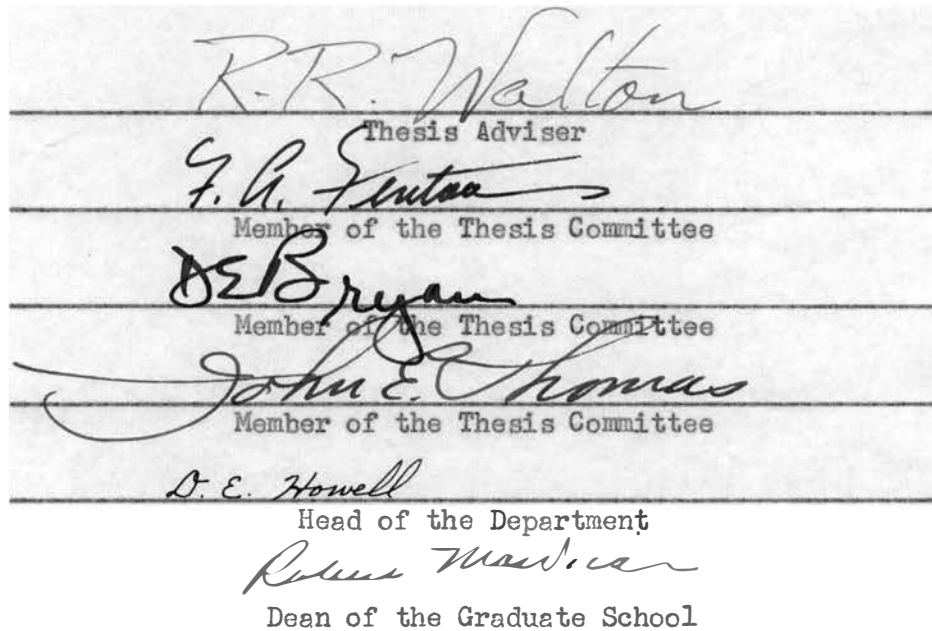 R. R. Walton
Thesis Adviser
F. A. Fenton
Member of the Thesis Committee
DE Bryan
Member of the Thesis Committee
John E. Thomas
Member of the Thesis Committee
D. E. Howell
Head of the Department
Robert MacVicar
Dean of the Graduate School